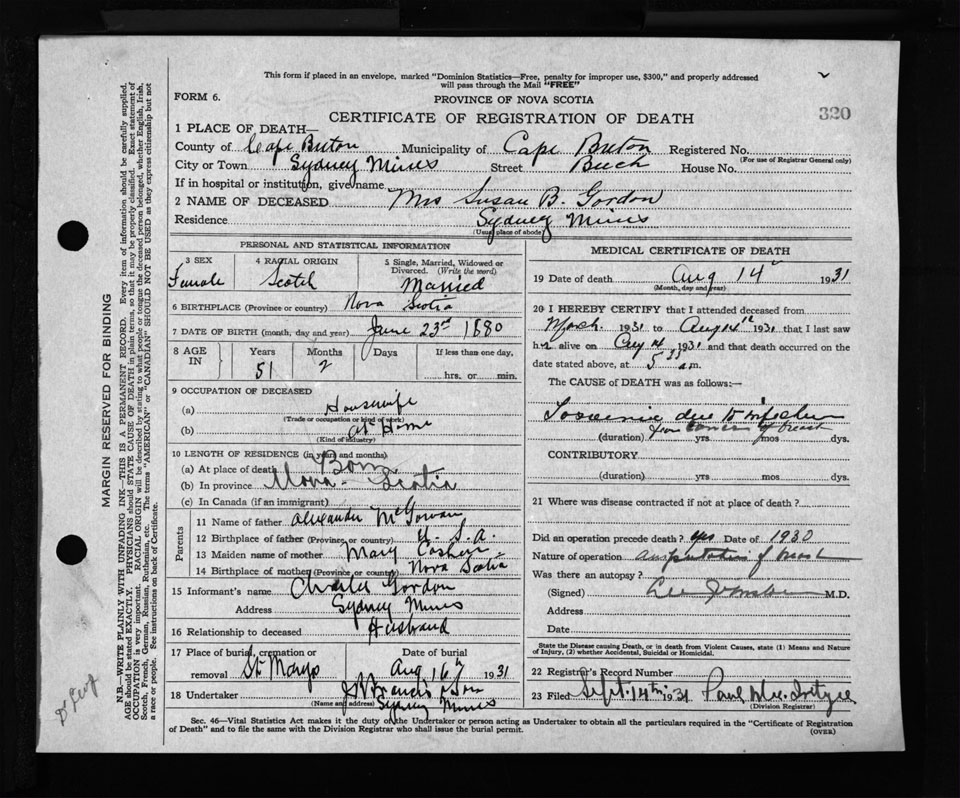 This form if placed in an envelope, marked "Dominion Statistics—Free, penalty for improper use, $300," and properly addressed
will pass through the Mail "FREE"
FORM 6.
PROVINCE OF NOVA SCOTIA
320
CERTIFICATE OF REGISTRATION OF DEATH
1 PLACE OF DEATH—
County of Cape Breton Municipality of Cape Breton Registered No.
(For use of Registrar General only)
City or Town Sydney Mines Street Beech House No.
If in hospital or institution, give name
2 NAME OF DECEASED Mrs Susan B. Gordon
Residence Sydney Mines
(Usual place of abode)
PERSONAL AND STATISTICAL INFORMATION
3 SEX Female
4 RACIAL ORIGIN Scotch
5 Single, Married, Widowed or Divorced. (Write the word) Married
6 BIRTHPLACE (Province or country) Nova Scotia
7 DATE OF BIRTH (month, day and year) June 23rd 1880
8 AGE IN Years 51 Months 2 Days If less than one day, hrs. or min.
9 OCCUPATION OF DECEASED
(a) Housewife
(Trade or occupation or kind of work)
(b) At Home
(Kind of industry)
10 LENGTH OF RESIDENCE (in years and months)
(a) At place of death Born
(b) In province Nova Scotia
(c) In Canada (if an immigrant)
Parents
11 Name of father Alexander McGowan
12 Birthplace of father (Province or country) U. S. A.
13 Maiden name of mother Mary
14 Birthplace of mother (Province or country) Nova Scotia
15 Informant's name Charles Gordon
Address Sydney Mines
16 Relationship to deceased Husband
17 Place of burial, cremation or removal St Marys
Date of burial Aug 16th 1931
18 Undertaker J Francis & Son
(Name and address) Sydney Mines
MEDICAL CERTIFICATE OF DEATH
19 Date of death Aug 14 1931
(Month, day and year)
20 I HEREBY CERTIFY that I attended deceased from
March 1931 to Aug 14th 1931 that I last saw
her alive on Aug 14 1931 and that death occurred on the
date stated above, at 5 a.m.
The CAUSE of DEATH was as follows:
Toxaemia due to infection
from cancer of breast
(duration) yrs. mos. dys.
CONTRIBUTORY
(duration) yrs. mos. dys.
21 Where was disease contracted if not at place of death?
Did an operation precede death? yes Date of 1930
Nature of operation amputation of breast
Was there an autopsy?
(Signed) M.D.
Address
Date
State the Disease causing Death, or in death from Violent Causes, state (1) Means and Nature
of Injury, (2) whether Accidental, Suicidal or Homicidal.
22 Registrar's Record Number
23 Filed Sept. 14th 1931 Paul
(Division Registrar)
Sec. 46—Vital Statistics Act makes it the duty of the Undertaker or person acting as Undertaker to obtain all the particulars required in the "Certificate of Registration
of Death" and to file the same with the Division Registrar who shall issue the burial permit.
(OVER)
MARGIN RESERVED FOR BINDING
N.B.—WRITE PLAINLY WITH UNFADING INK—THIS IS A PERMANENT RECORD. Every item of information should be carefully supplied.
AGE should be stated EXACTLY. PHYSICIANS should STATE CAUSE OF DEATH in plain terms, so that it may be properly classified. Exact statement of
OCCUPATION is very important. RACIAL ORIGIN will be described by stating to what people or tongue the deceased person belonged, whether English, Irish,
Scotch, French, German, Russian, Ruthenian, etc. The terms "AMERICAN" or "CANADIAN" SHOULD NOT BE USED as they express citizenship but not
a race or people. See instructions on back of Certificate.